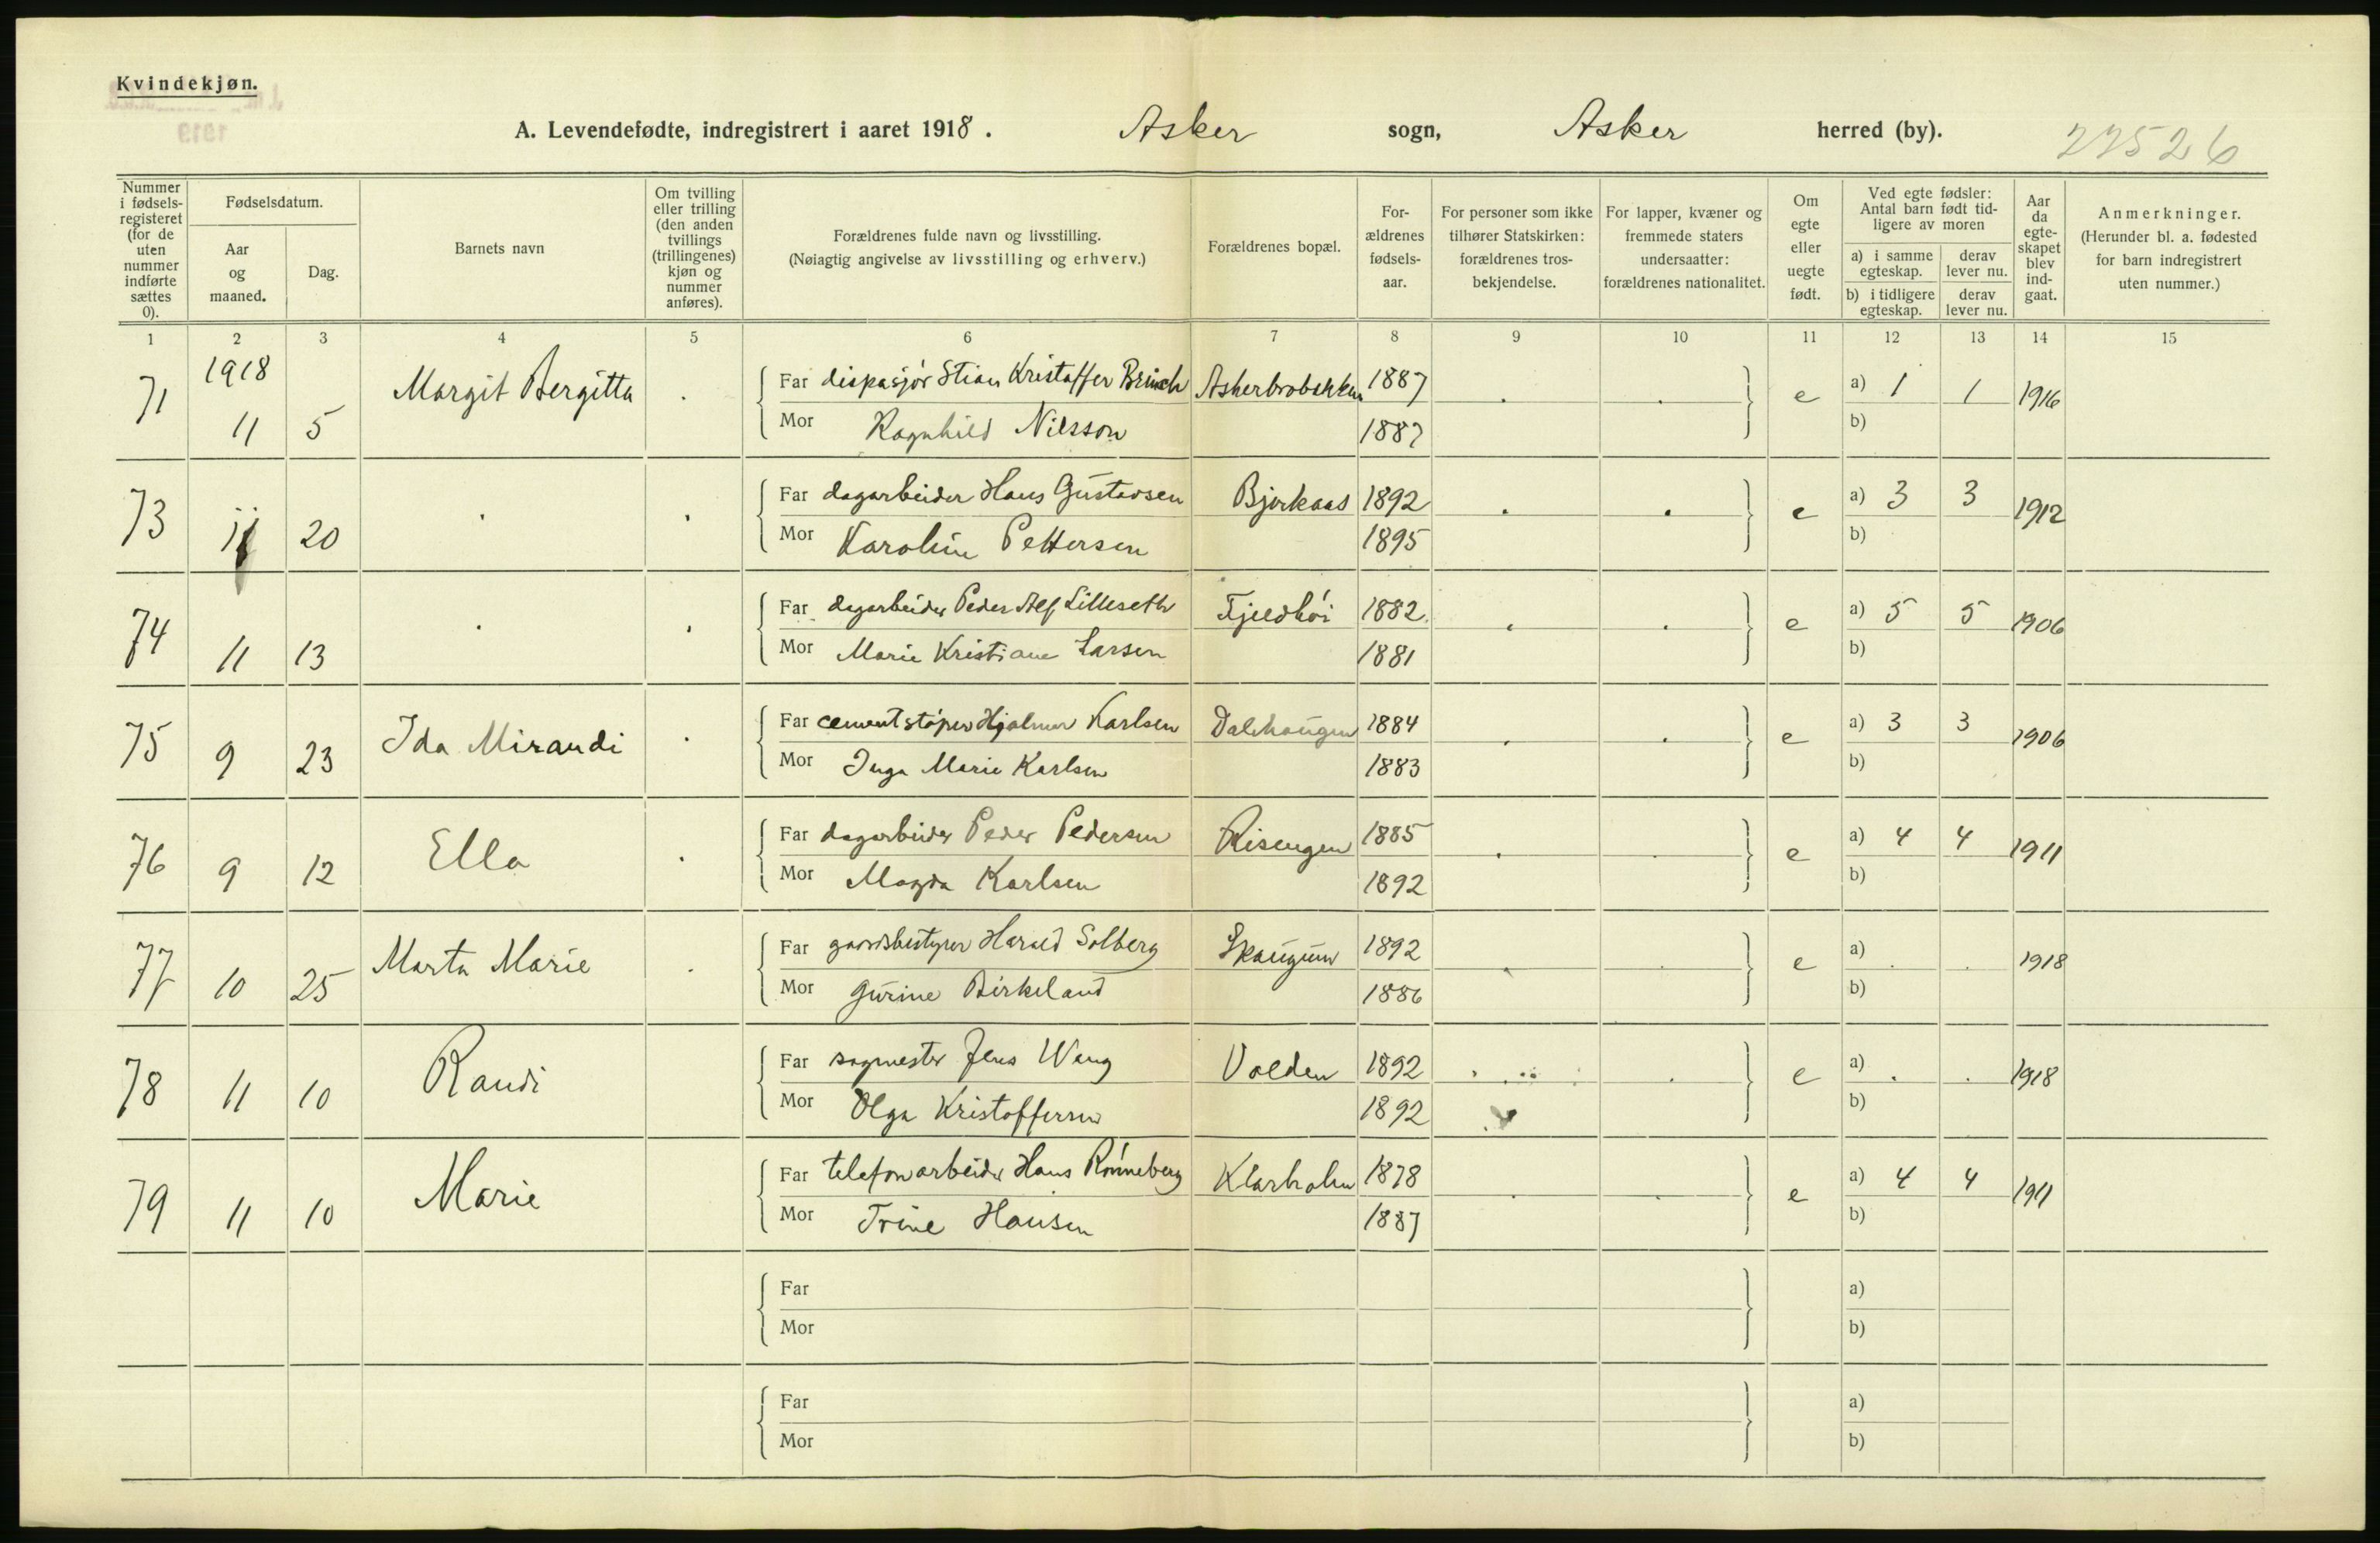 Kvindekjøn.
1919
A. Levendefødte, indregistrert i aaret 1918. Asker sogn, Asker herred (by). 22526
Nummer i fødsels-registeret (for de uten nummer indførte sættes 0).
Fødselsdatum.
Aar og maaned.
Dag.
Barnets navn
Om tvilling eller trilling (den anden tvillings (trillingenes) kjøn og nummer anføres).
Forældrenes fulde navn og livsstilling.
(Nøiagtig angivelse av livsstilling og erhverv.)
Forældrenes bopæl.
For-ældrenes fødsels-aar.
For personer som ikke tilhører Statskirken: forældrenes tros-bekjendelse.
For lapper, kvæner og fremmede staters undersaatter: forældrenes nationalitet.
Om egte eller uegte født.
Ved egte fødsler: Antal barn født tid-ligere av moren
a) i samme egteskap.
derav lever nu.
b) i tidligere egteskap.
derav lever nu.
Aar da egte-skapet blev ind-gaat.
Anmerkninger.
(Herunder bl. a. fødested for barn indregistrert uten nummer.)
1 2 3 4 5 6 7 8 9 10 11 12 13 14 15
1918
71 11 5 Margit Bergitta . Far dispasjør Stian Kristoffer Brinch 1887 . . e a) 1 1 1916
Mor Ragnhild Nilsson 1887 b)
73 11 20 . . Far dagarbeider Hans Gustavsen Bjørkaas 1892 . . e a) 3 3 1912
Mor Karoline Pettersen 1895 b)
74 11 13 . . Far dagarbeider Peder Alf Lilleseth Fjeldhøi 1882 . . e a) 5 5 1906
Mor Marie Kristiane Larsen 1881 b)
75 9 23 Ida Mirandi . Far cementstøper Hjalmar Karlsen Dalhaugen 1884 . . e a) 3 3 1906
Mor Inga Marie Karlsen 1883 b)
76 9 12 Ella . Far dagarbeider Peder Pedersen Risengen 1885 . . e a) 4 4 1911
Mor Magda Karlsen 1892 b)
77 10 25 Marta Marie . Far gaardsbestyrer Harald Solberg Skaugum 1892 . . e a) . . 1918
Mor Gurine Birkeland 1886 b)
78 11 10 Randi Far sagmester Jens Weng Volden 1892 . . e a) . . 1918
Mor Olga Kristoffersen 1892 b)
79 11 10 Marie Far telefonarbeider Hans Rønneberg Klarholm 1878 . . e a) 4 4 1911
Mor Trine Hansen 1887 b)
Far a)
Mor b)
Far a)
Mor b)